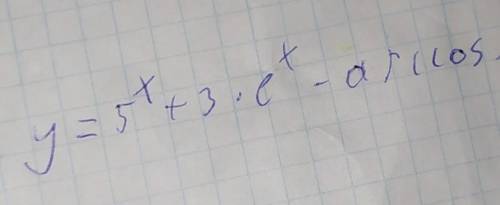 y = 5^x + 3 · e^x - arccos